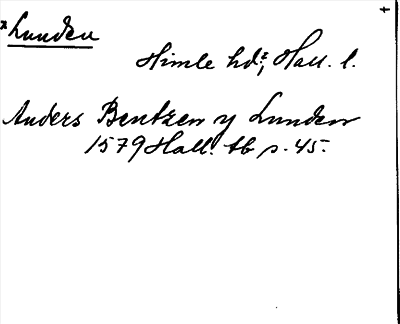 *Lunden
Himle hd:, Hall. l.
Anders Bentzen y Lunden
1579 Hall. tb s. 45.